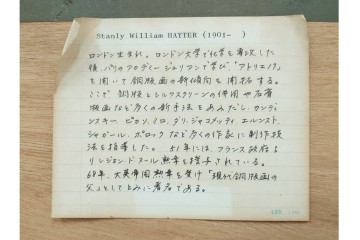 Stanly William HAYTER (1901- )
ロンドン生まれ。ロンドン大学で化学を専攻した
後、パリのアカデミー・ジュリアンで学び、「アトリエ17」
を開いて銅版画の新傾向を開拓する。
ここで銅版とシルクスクリーンの併用や石膏
版画など多くの新手法をあみだし、カンディ
ンスキー、ピカソ、ミロ、ダリ、ジャコメッティ、エルンスト、
シャガール、ポロックなど多くの作家に制作技
法を指導した。51年には、フランス政府より
レジョン・ドヌール勲章を授与されている。
68年、大英帝国勲章を受け「現代銅版画の
父」としてとみに著名である。